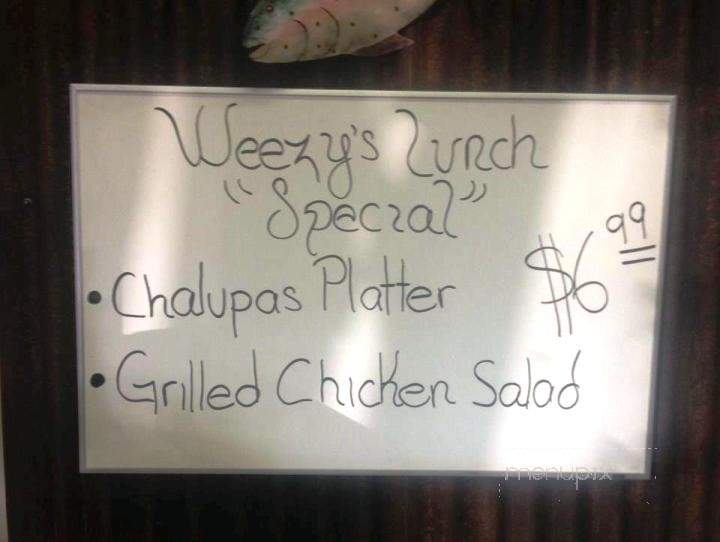 Weezy's Lunch
"Special"
• Chalupas Platter $6.99
• Grilled Chicken Salad
menupix